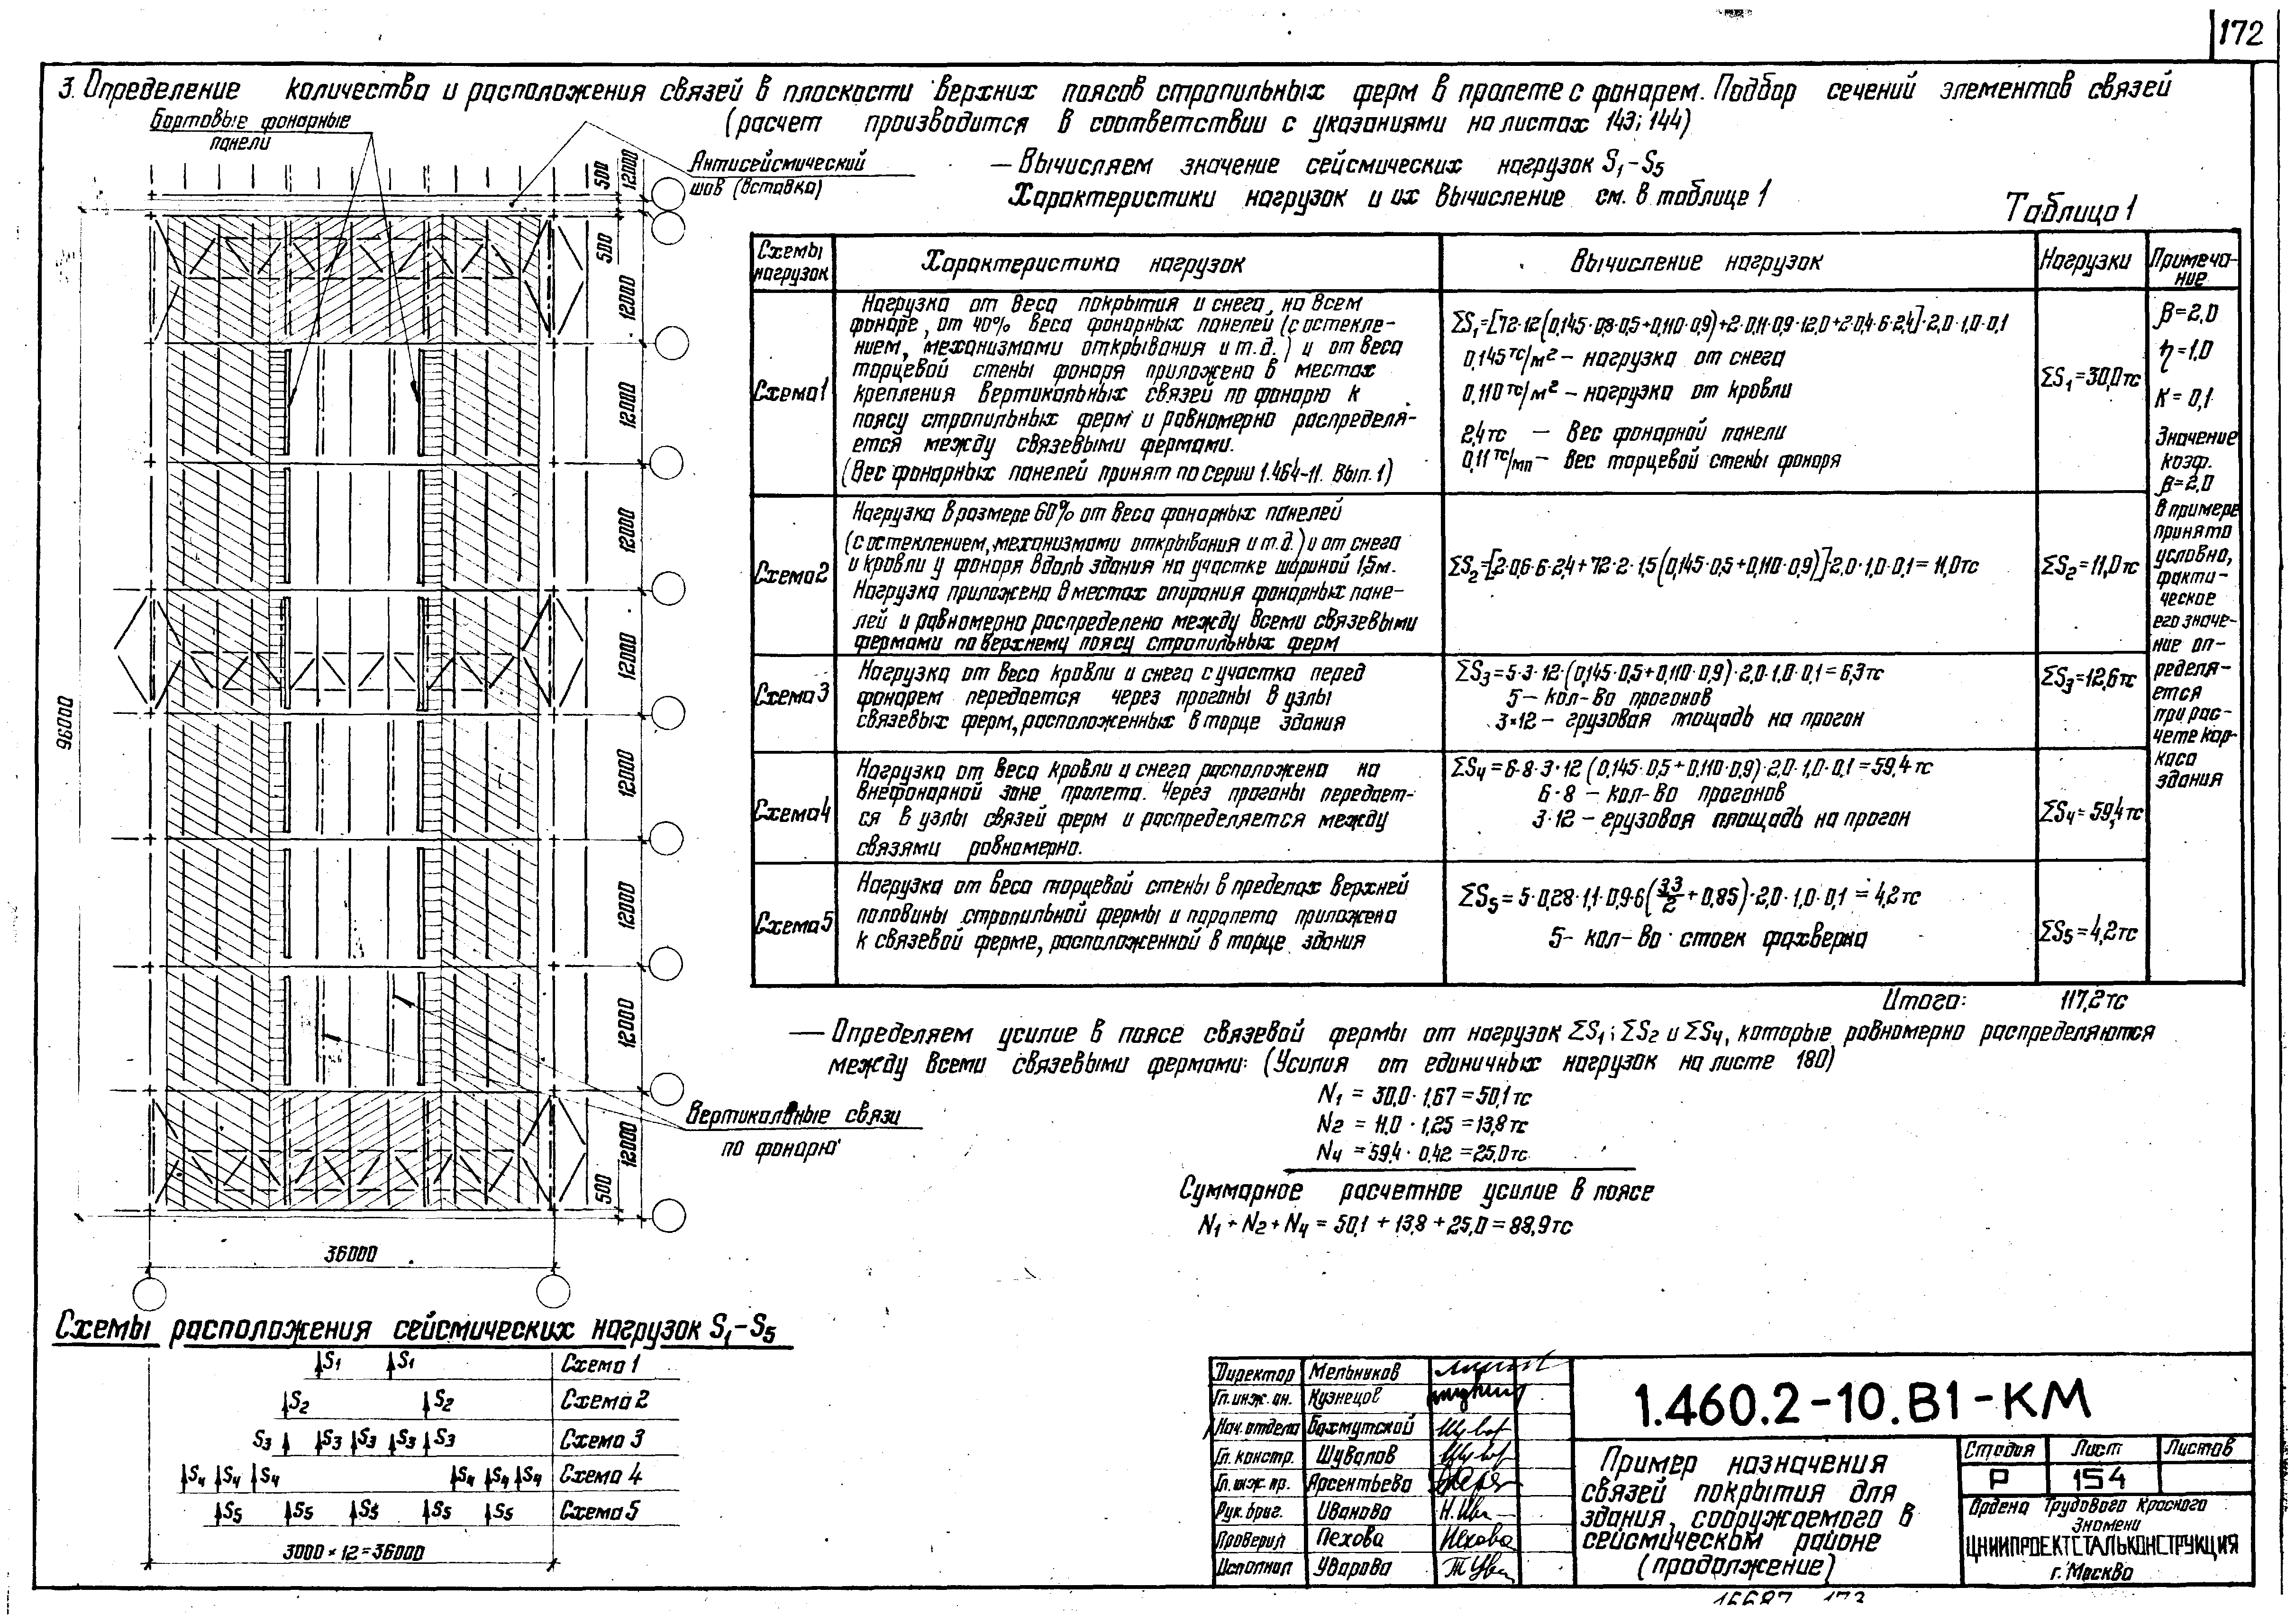 172
3. Определение количества и расположения связей в плоскости верхних поясов стропильных ферм в пролете с фонарем. Подбор сечений элементов связей
(расчет производится в соответствии с указаниями на листах 143; 144)
Бортовые фонарные
панели
Антисейсмический
шов (вставка)
— Вычисляем значение сейсмических нагрузок S₁-S₅
Характеристики нагрузок и их вычисление см. в таблице 1
Таблица 1
Схемы
нагрузок
Характеристика нагрузок
Вычисление нагрузок
Нагрузки
Примеча-
ние
Схема1
Нагрузка от веса покрытия и снега, на всем
фонаре, от 40% веса фонарных панелей (с остекле-
нием, механизмами открывания и т.д.) и от веса
торцевой стены фонаря приложена в местах
крепления вертикальных связей по фонарю к
поясу стропильных ферм и равномерно распределя-
ется между связевыми фермами.
(Вес фонарных панелей принят по серии 1.464-11. Вып. 1)
ΣS₁=[72·12(0,145·0,8·0,5+0,110·0,9)+2·0,11·0,9·12,0+2·0,4·6·2,4]·2,0·1,0·0,1
0,145 тс/м² – нагрузка от снега
0,110 тс/м² – нагрузка от кровли
2,4тс — Вес фонарной панели
0,11 тс/мп – Вес торцевой стены фонаря
ΣS₁=30,0тс
β=2,0
η=1,0
К=0,1
Значение
коэф.
β=2,0
в примере
принято
условно,
факти-
ческое
его значе-
ние оп-
ределя-
ется
при рас-
чете кар-
каса
здания
Схема2
Нагрузка в размере 60% от веса фонарных панелей
(с остеклением, механизмами открывания и т.д.) и от снега
и кровли у фонаря вдоль здания на участке шириной 1,5м.
Нагрузка приложена в местах опирания фонарных пане-
лей и равномерно распределена между всеми связевыми
фермами по верхнему поясу стропильных ферм
ΣS₂=[2·0,6·6·2,4+72·2·1,5(0,145·0,5+0,110·0,9)]·2,0·1,0·0,1=11,0тс
ΣS₂=11,0тс
Схема3
Нагрузка от веса кровли и снега с участка перед
фонарем передается через прогоны в узлы
связевых ферм, расположенных в торце здания
ΣS₃=5·3·12·(0,145·0,5+0,110·0,9)·2,0·1,0·0,1=6,3тс
5 – кол-во прогонов
3×12 – грузовая площадь на прогон
ΣS₃=12,6тс
Схема4
Нагрузка от веса кровли и снега расположена на
внефонарной зоне пролета. Через прогоны передает-
ся в узлы связей ферм и распределяется между
связями равномерно.
ΣS₄=6·8·3·12 (0,145·0,5+0,110·0,9)·2,0·1,0·0,1=59,4тс
6·8 – кол-во прогонов
3·12 – грузовая площадь на прогон
ΣS₄=59,4тс
Схема5
Нагрузка от веса торцевой стены в пределах верхней
половины стропильной фермы и парапета приложена
к связевой ферме, расположенной в торце здания
ΣS₅=5·0,28·1,1·0,9·6(3,3/2+0,85)·2,0·1,0·0,1=4,2тс
5- кол-во стоек фахверка
ΣS₅=4,2тс
Итого: 117,2тс
— Определяем усилие в поясе связевой фермы от нагрузок ΣS₁; ΣS₂ и ΣS₄, которые равномерно распределяются
между всеми связевыми фермами: (Усилия от единичных нагрузок на листе 180)
N₁ = 30,0·1,67=50,1тс
N₂ = 11,0·1,25=13,8тс
N₄ = 59,4·0,42=25,0тс
Суммарное расчетное усилие в поясе
N₁+N₂+N₄=50,1+13,8+25,0=88,9тс
500
12000
500
12000
12000
12000
12000
12000
12000
12000
12000
500
96000
Вертикальные связи
по фонарю
36000
Схемы расположения сейсмических нагрузок S₁-S₅
S₁ S₁ Схема 1
S₂ S₂ Схема 2
S₃ S₃ S₃ S₃ S₃ Схема 3
S₄ S₄ S₄ S₄ S₄ S₄ Схема 4
S₅ S₅ S₅ S₅ S₅ Схема 5
3000×12=36000
Директор Мельников
Гл. инж. ин. Кузнецов
Нач. отдела Бахмутский
Гл. констр. Шувалов
Гл. инж. пр. Арсентьева
Рук. бриг. Иванова
Проверил Пехова
Исполнил Уварова
1.460.2-10.В1-КМ
Пример назначения
связей покрытия для
здания, сооружаемого в
сейсмическом районе
(продолжение)
Стадия Лист Листов
Р 154
Ордена Трудового Красного
Знамени
ЦНИИПРОЕКТСТАЛЬКОНСТРУКЦИЯ
г. Москва
16687 173